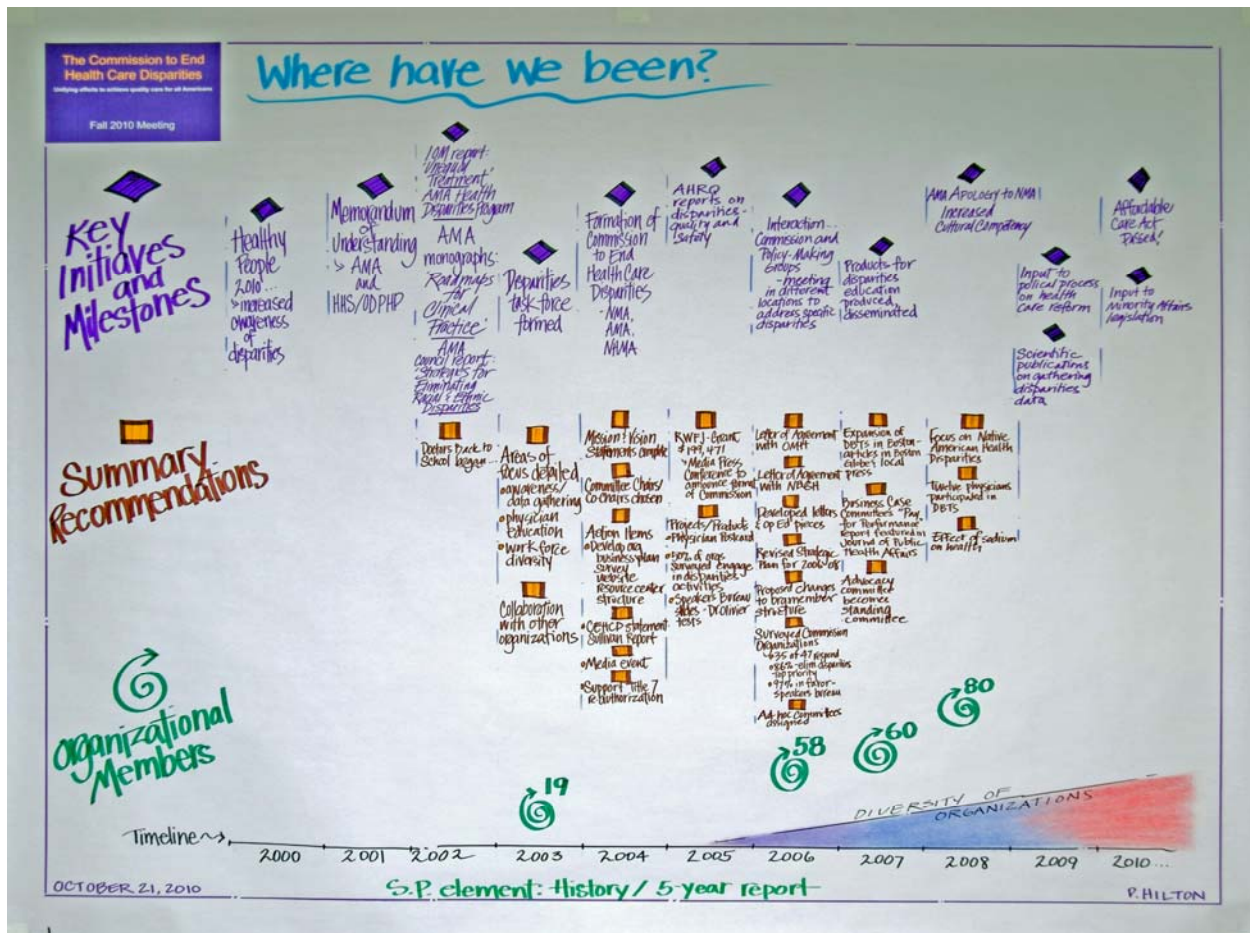 The Commission to End
Health Care Disparities
Unifying efforts to achieve quality care for all Americans
Fall 2010 Meeting
Where have we been?
Key
Initiaves
and
Milestones
Healthy
People
2010...
↘ increased
awareness
of
disparities
Memorandum
of
Understanding
↘ AMA
and
HHS/ODPHP
IOM report:
"Unequal
Treatment"
AMA Health
Disparities Program
AMA
monographs:
"Roadmaps
for
Clinical
Practice"
AMA
Council report:
"Strategies for
Eliminating
Racial & Ethnic
Disparities
Disparities
task force
formed
Formation of
Commission
to End
Health Care
Disparities
-NMA,
AMA,
NHMA
AHRQ
reports on
disparities-
quality and
safety
Interaction...
Commission and
Policy-Making
Groups
-meeting
in different
locations to
address specific
disparities
Products for
disparities
education
produced,
disseminated
AMA Apology to NMA
Increased
Cultural Competency
Input to
political process
on health
care reform
Scientific
publications
on gathering
disparities
data
Affordable
Care Act
Passed!
Input to
Minority Affairs
legislation
Summary
Recommendations
Doctors Back to
School began...
Areas of
focus detailed
• awareness/
data gathering
• physician
education
• work force
diversity
Collaboration
with other
organizations
Mission & Vision
Statements complete
Committee Chairs/
Co-chairs chosen
Action Items
• Develop org
business plan
survey
website
resource center
structure
• CEHCD statement
Sullivan Report
• Media event
• Support Title 7
reauthorization
RWFJ-Grant
$199,471
↘ Media Press
Conference to
announce format
of Commission
Projects/Products
• Physician Postcard
• 50% of orgs
surveyed engage
in disparities
activities
• Speakers Bureau
slides - Dr Olivier
tests
Letter of Agreement
with OMH
Letter of Agreement
with NBGH
Developed letters
& Op Ed pieces
Revised Strategic
Plan for 2006-08
Proposed changes
to
structure
Surveyed Commission
Organizations
35 of 47 respond
• 86% -elim disparities
top priority
• 97% in favor-
speakers bureau
Ad hoc committees
assigned
Expansion of
DBTS in Boston-
articles in Boston
Globe's local
press
Business Case
Committee's "Pay
for Performance"
report featured in
Journal of Public
Health Affairs
Advocacy
committee
becomes
standing
committee
Focus on Native
American Health
Disparities
Twelve physicians
participated in
DBTS
Effect of sodium
on health
Organizational
Members
19
58
60
80
DIVERSITY OF
ORGANIZATIONS
Timeline
2000 2001 2002 2003 2004 2005 2006 2007 2008 2009 2010...
OCTOBER 21, 2010
S.P. element: History / 5-year report
P. HILTON